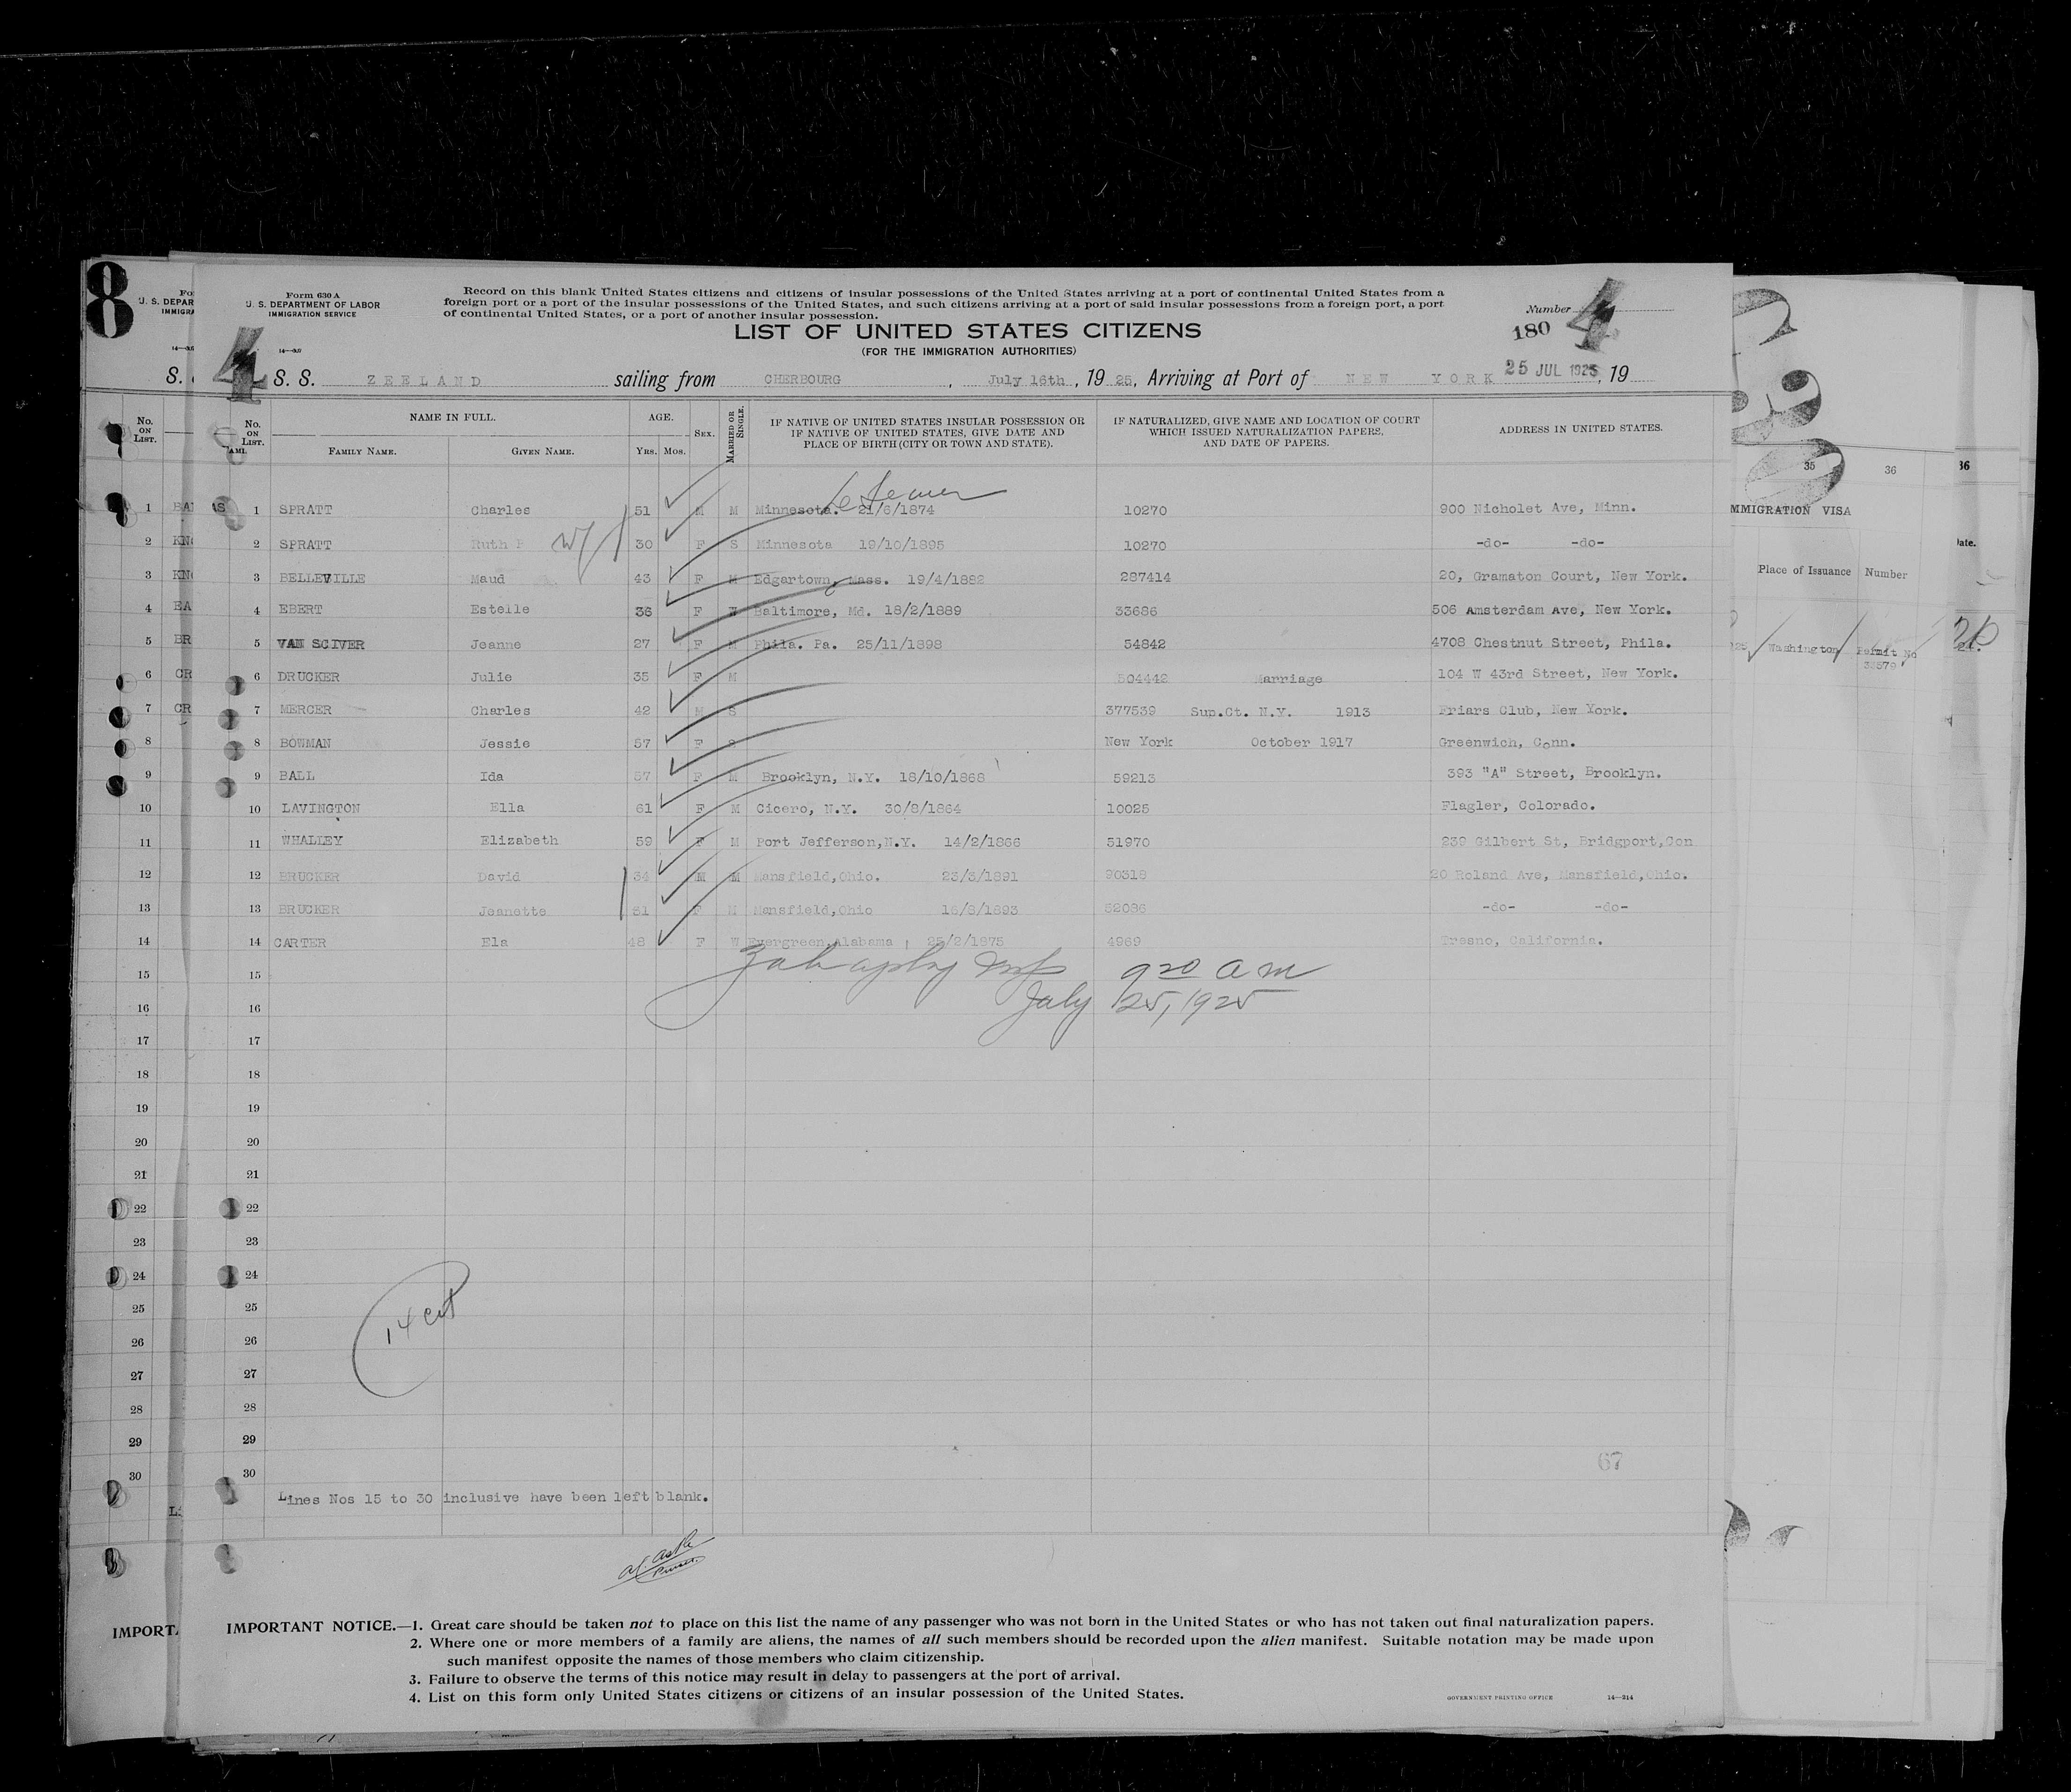 8
Form 630 A
U. S. DEPARTMENT OF LABOR
IMMIGRATION SERVICE
Record on this blank United States citizens and citizens of insular possessions of the United States arriving at a port of continental United States from a
foreign port or a port of the insular possessions of the United States, and such citizens arriving at a port of said insular possessions from a foreign port, a port
of continental United States, or a port of another insular possession.
LIST OF UNITED STATES CITIZENS
(FOR THE IMMIGRATION AUTHORITIES)
Number 4
180
4
S. S. ZEELAND sailing from CHERBOURG, July 16th, 1925, Arriving at Port of NEW YORK 25 JUL 1925, 19
No. ON LIST. NAME IN FULL. FAMILY NAME. GIVEN NAME. AGE. YRS. MOS. SEX. MARRIED OR SINGLE. IF NATIVE OF UNITED STATES INSULAR POSSESSION OR IF NATIVE OF UNITED STATES, GIVE DATE AND PLACE OF BIRTH (CITY OR TOWN AND STATE). IF NATURALIZED, GIVE NAME AND LOCATION OF COURT WHICH ISSUED NATURALIZATION PAPERS, AND DATE OF PAPERS. ADDRESS IN UNITED STATES.
1 SPRATT Charles 51 M M Minnesota. 21/6/1874 10270 900 Nicholet Ave, Minn.
2 SPRATT Ruth 30 F S Minnesota 19/10/1895 10270 -do- -do-
3 BELLEVILLE Maud 43 F M Edgartown, Mass. 19/4/1882 287414 20, Gramaton Court, New York.
4 EBERT Estelle 36 F Baltimore, Md. 18/2/1889 33686 506 Amsterdam Ave, New York.
5 VAN SCIVER Jeanne 27 F M Phila. Pa. 25/11/1898 54842 4708 Chestnut Street, Phila.
6 DRUCKER Julie 35 F M 504442 Marriage 104 W 43rd Street, New York.
7 MERCER Charles 42 M S 377539 Sup.Ct. N.Y. 1913 Friars Club, New York.
8 BOWMAN Jessie 57 F S New York October 1917 Greenwich, Conn.
9 BALL Ida 57 F M Brooklyn, N.Y. 18/10/1868 59213 393 "A" Street, Brooklyn.
10 LAVINGTON Ella 61 F M Cicero, N.Y. 30/8/1864 10025 Flagler, Colorado.
11 WHALLEY Elizabeth 59 F M Port Jefferson,N.Y. 14/2/1866 51970 239 Gilbert St, Bridgport,Con
12 BRUCKER David 34 M M Mansfield,Ohio. 23/5/1891 90318 20 Roland Ave, Mansfield,Ohio.
13 BRUCKER Jeanette 31 F M Mansfield,Ohio 16/8/1893 52096 -do- -do-
14 CARTER Ela 48 F W Evergreen,Alabama 25/2/1875 4969 Fresno, California.
15 9 20 a m
16 July 25, 1925
17
18
19
20
21
22
23
24
25
26
27
28
29
30
14 cit
67
Lines Nos 15 to 30 inclusive have been left blank.
IMPORTANT NOTICE.—1. Great care should be taken not to place on this list the name of any passenger who was not born in the United States or who has not taken out final naturalization papers.
2. Where one or more members of a family are aliens, the names of all such members should be recorded upon the alien manifest. Suitable notation may be made upon
such manifest opposite the names of those members who claim citizenship.
3. Failure to observe the terms of this notice may result in delay to passengers at the port of arrival.
4. List on this form only United States citizens or citizens of an insular possession of the United States.
GOVERNMENT PRINTING OFFICE 14—314
35 36
IMMIGRATION VISA
Place of Issuance Number
Washington Permit No